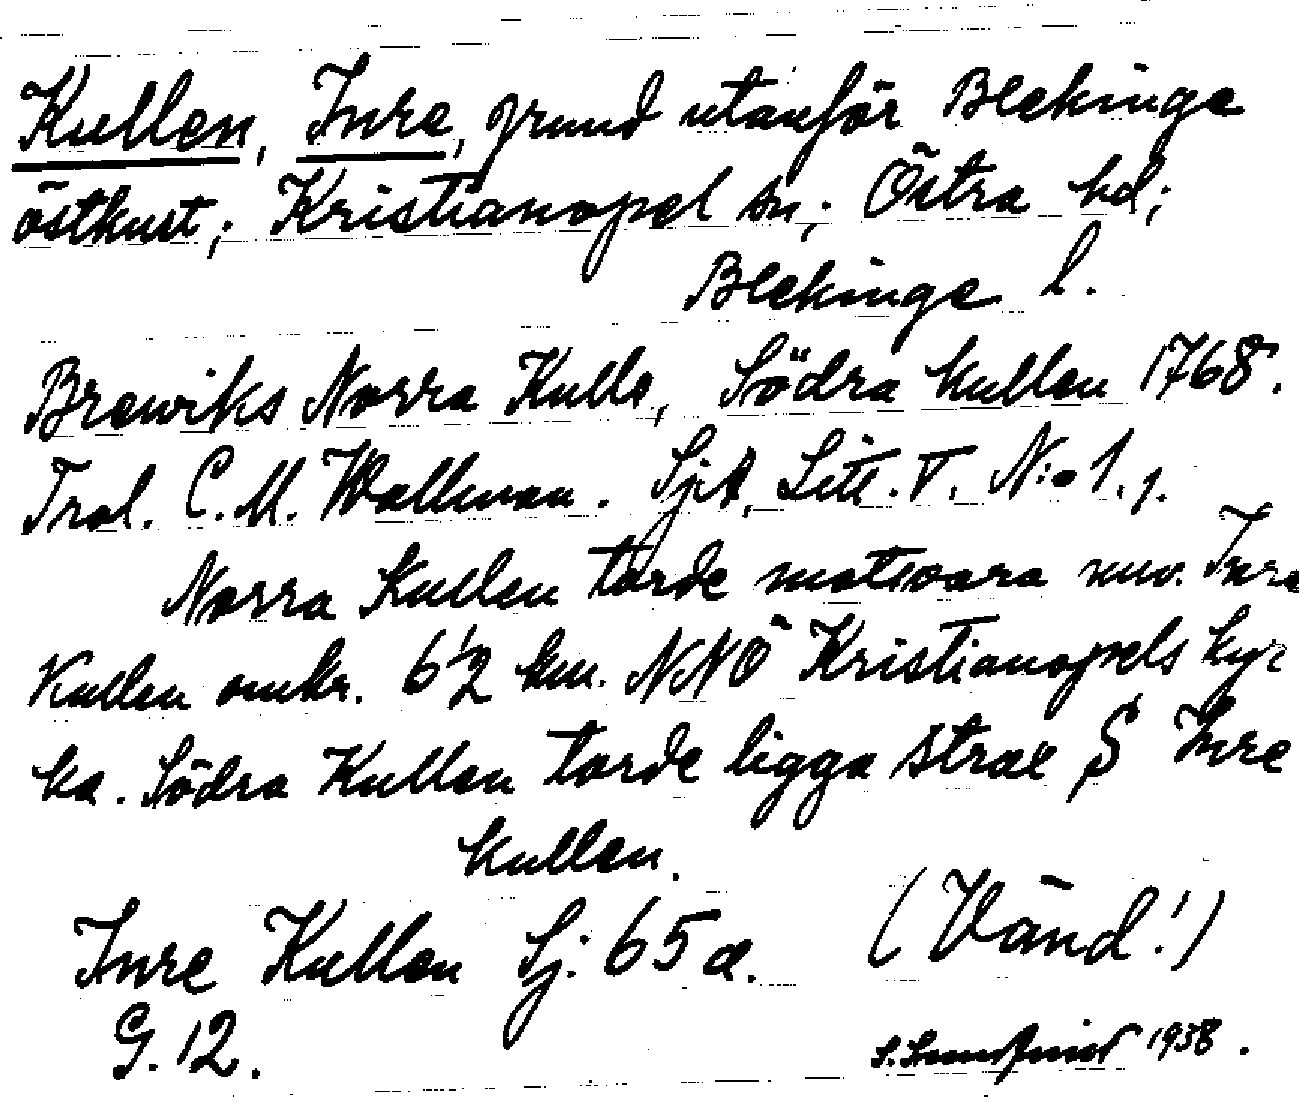 Kullen, Inre, grund utanför Blekinge
östkust; Kristianopel sn; Östra hd;
Blekinge l.
Brewiks Norra Kulle, Södra Kullen 1768.
Trol. C. M. Wallman. SjA, Litt. V. N:o 1, 1.
Norra Kullen torde motsvara nuv. Inre
Kullen omkr. 6 1/2 km. NNÖ Kristianopels kyr
ka. Södra Kullen torde ligga strax S Inre
Kullen.
Inre Kullen Sj: 65 a. (Vänd!)
G. 12. 1938.